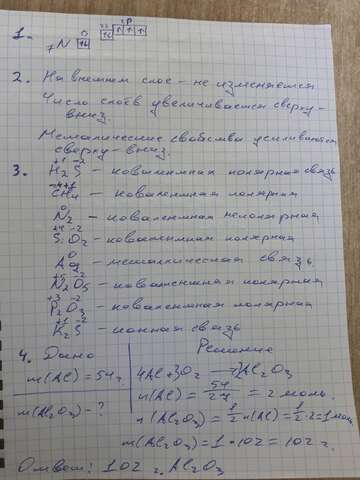 1. ₇N ↑↓ ↑↓ ↑ ↑ ↑
2. На внешнем слое - не изменяется
Число слоёв увеличивается сверху-
вниз.
Металлические свойства усиливаются
сверху-вниз.
3. H₂S - ковалентная полярная связь
CH₄ - ковалентная полярная
N₂ - ковалентная неполярная
SiO₂ - ковалентная полярная
Ag - металлическая связь
N₂O₅ - ковалентная полярная
P₂O₃ - ковалентная полярная
K₂S - ионная связь
4. Дано
m(Al) = 54 г.
m(Al₂O₃) - ?
Решение
4Al + 3O₂ → 2Al₂O₃
n(Al) = 54/27 = 2 моль.
n(Al₂O₃) = 1/2 n(Al) = 1/2 · 2 = 1 моль
m(Al₂O₃) = 1 · 102 = 102 г.
Ответ: 102 г. Al₂O₃